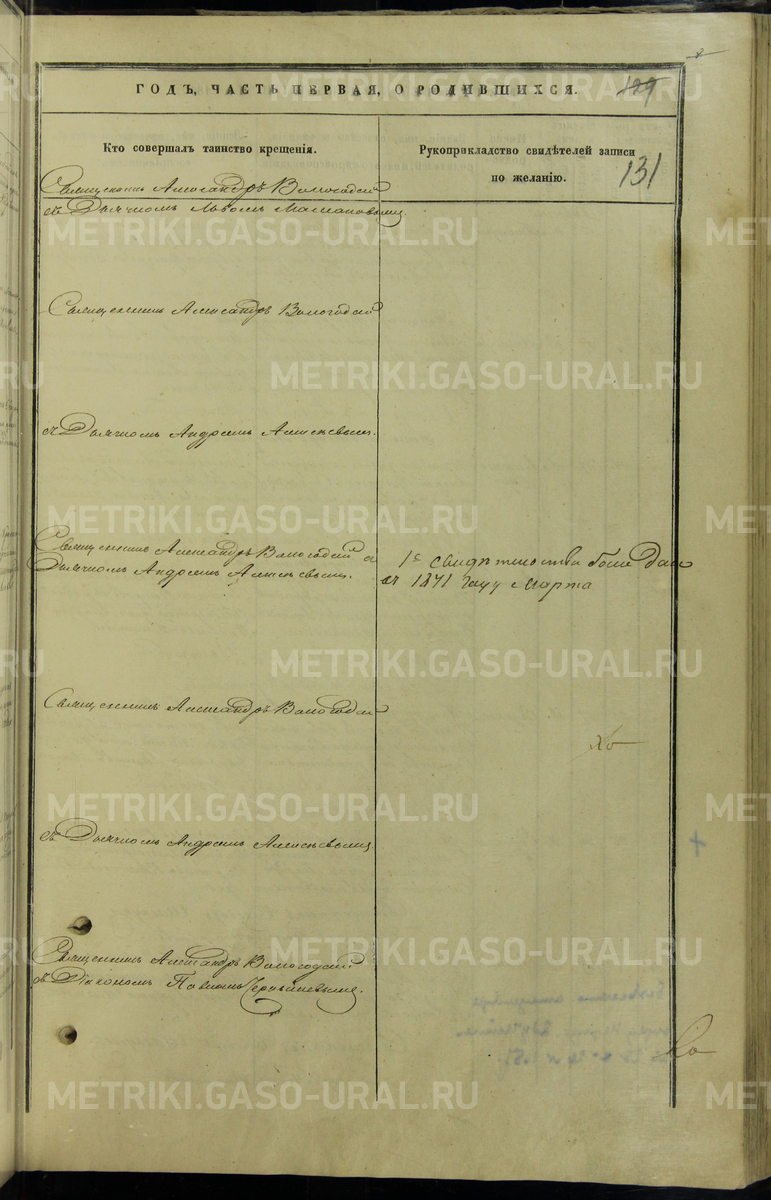 ГОДЪ, ЧАСТЬ ПЕРВАЯ, О РОДИВШИХСЯ.
129
131
Кто совершалъ таинство крещенія.
Рукоприкладство свидѣтелей записи
по желанію.
Священникъ Александръ Вологодскій
съ Дьячкомъ Львомъ
Священникъ Александръ Вологодскій
съ Дьячкомъ Андреемъ Алексѣевымъ.
Священникъ Александръ Вологодскій съ
Дьячкомъ Андреемъ Алексѣевымъ.
въ 1871 году Марта
Священникъ Александръ Вологодскій
съ Дьячкомъ Андреемъ Алексѣевымъ
Священникъ Александръ Вологодскій
съ Діакономъ Павломъ
METRIKI.GASO-URAL.RU